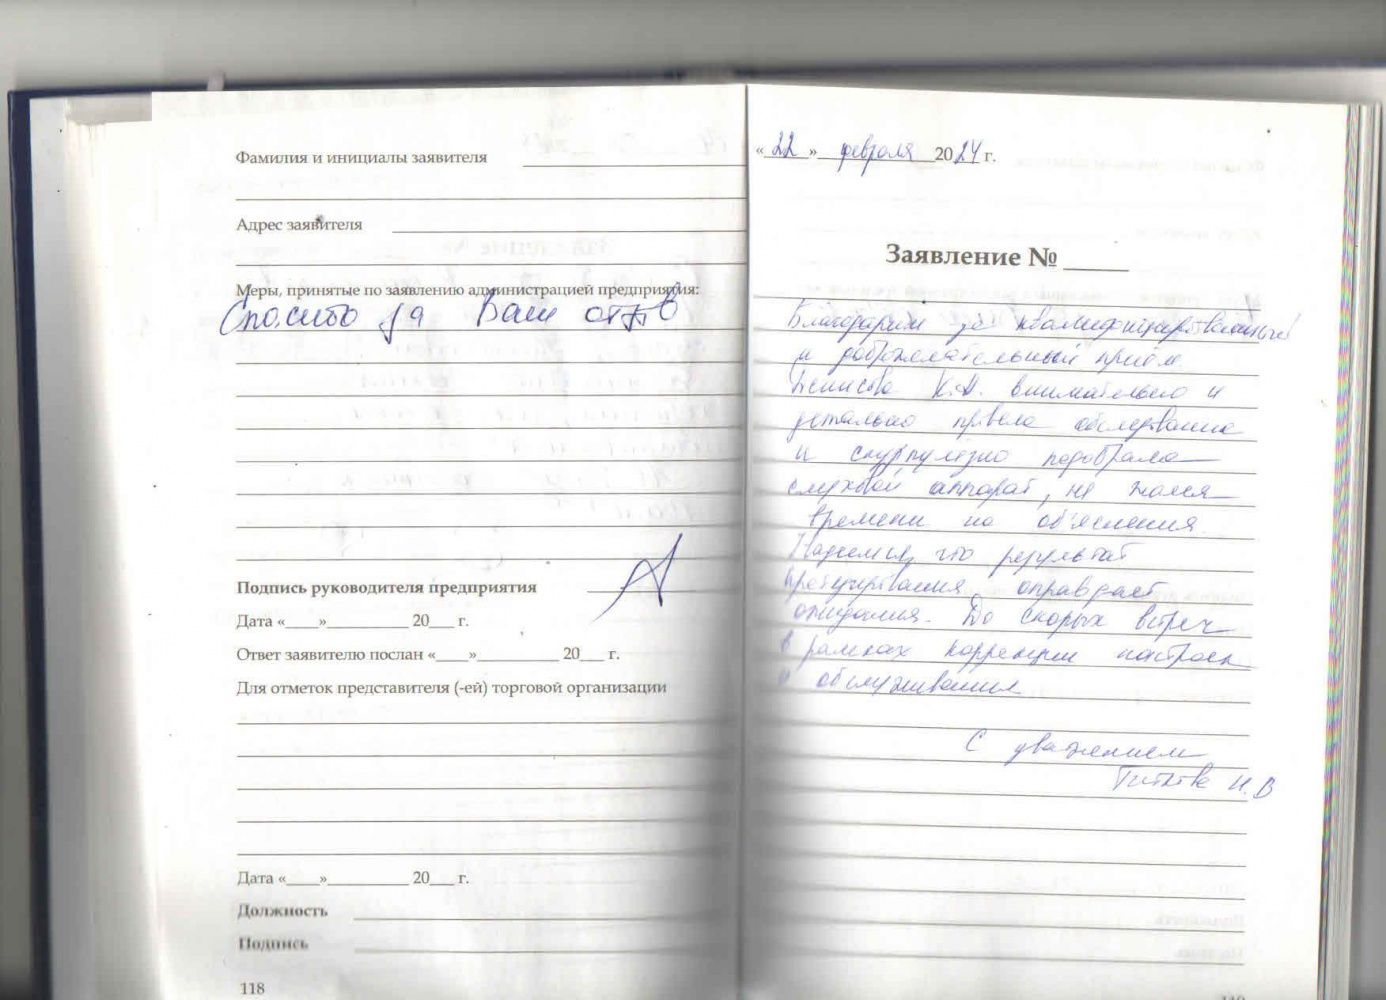 Фамилия и инициалы заявителя
Адрес заявителя
Меры, принятые по заявлению администрацией предприятия:
Спасибо за Ваш отзыв
Подпись руководителя предприятия
Дата «____»__________ 20___ г.
Ответ заявителю послан «____»__________ 20___ г.
Для отметок представителя (-ей) торговой организации
Дата «____»__________ 20___ г.
Должность
Подпись
118
«22» февраля 2024 г.
Заявление № _____
Благодарим за квалифицированный
и доброжелательный приём.
Денисова К.А. внимательно и
детально провела обследование
и скурпулезно подобрала
слуховой аппарат, не жалея
времени на объяснения.
Надеемся, что результат
протезирования оправдает
ожидания. До скорых встреч
в рамках коррекции настроек
и обслуживания
С уважением
Н.В